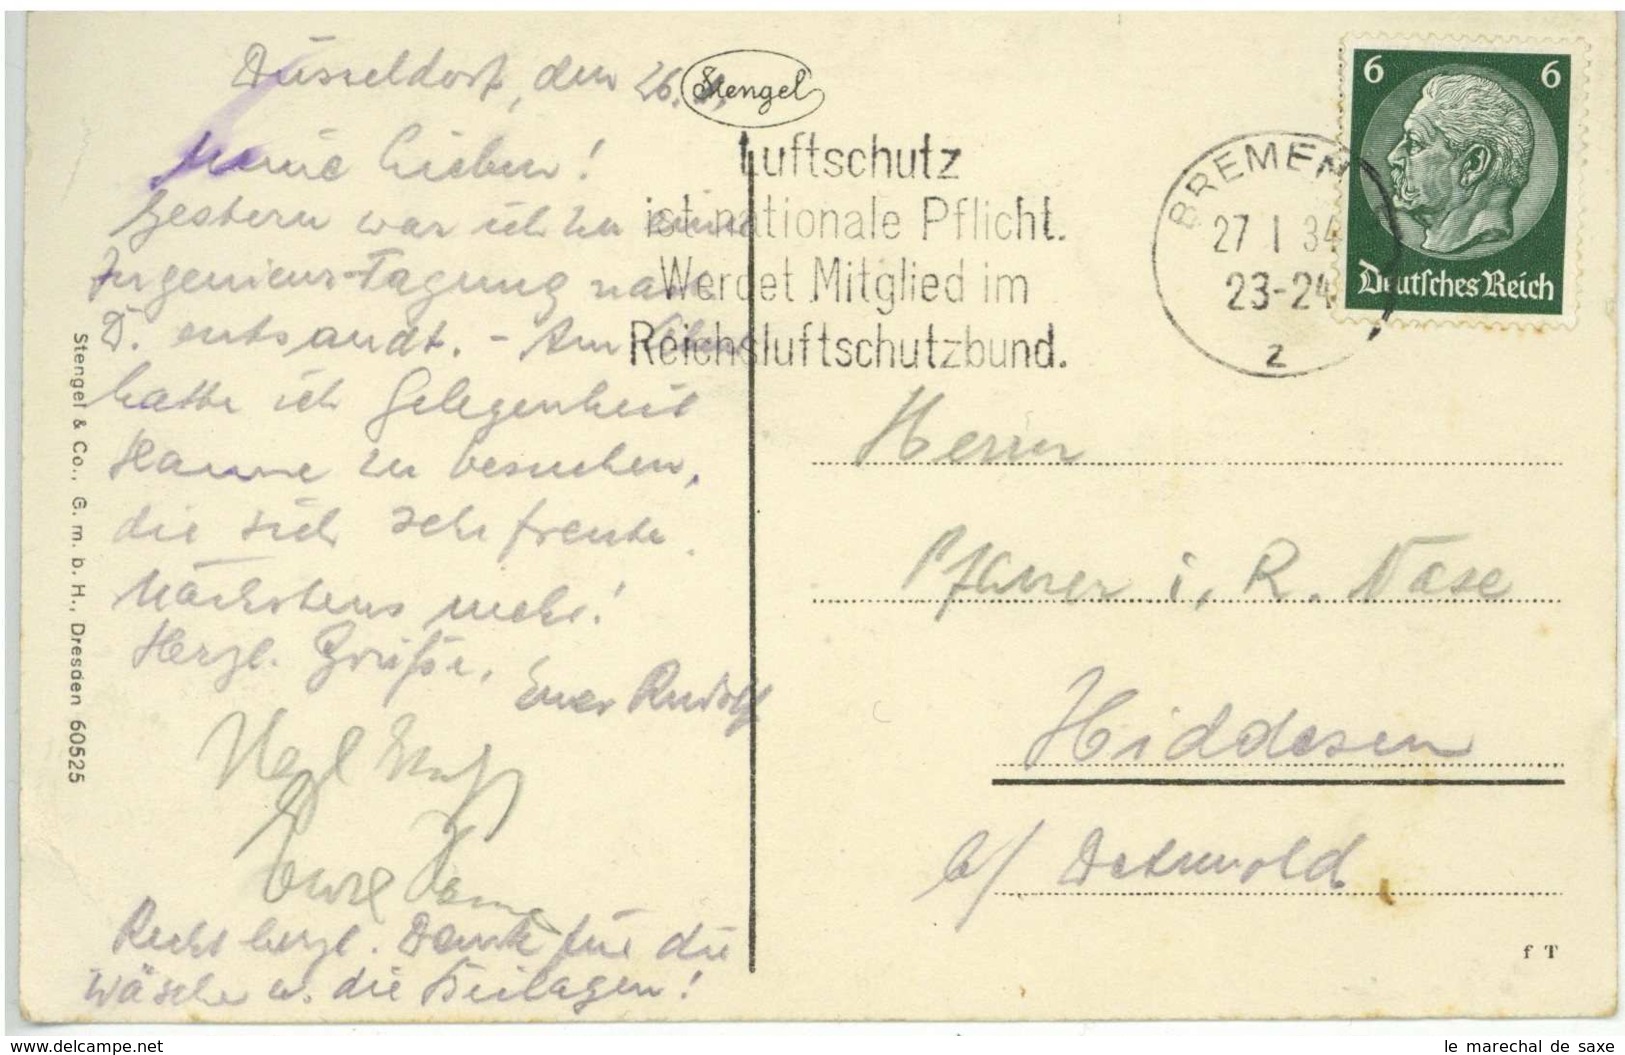 Düsseldorf, den 26.
Stengel
Meine Lieben!
Gestern war ich zu einer
Ingenieur-Tagung nach
D. entsandt. - Am
hatte ich Gelegenheit
Hanne zu besuchen,
die sich sehr freute.
Nächstens mehr!
Herzl. Grüße,
Euer Rudolf
Herzl
Eure
Recht herzl. Dank für die
Wäsche u. die Beilagen!
Stengel & Co., G. m. b. H., Dresden 60525
Luftschutz
ist nationale Pflicht.
Werdet Mitglied im
Reichsluftschutzbund.
BREMEN
27 1 34
23-24
2
6 6
Deutsches Reich
Herrn
Pfarrer i. R. Nase
Hiddesen
b/ Detmold
f T
www.delcampe.net
le marechal de saxe